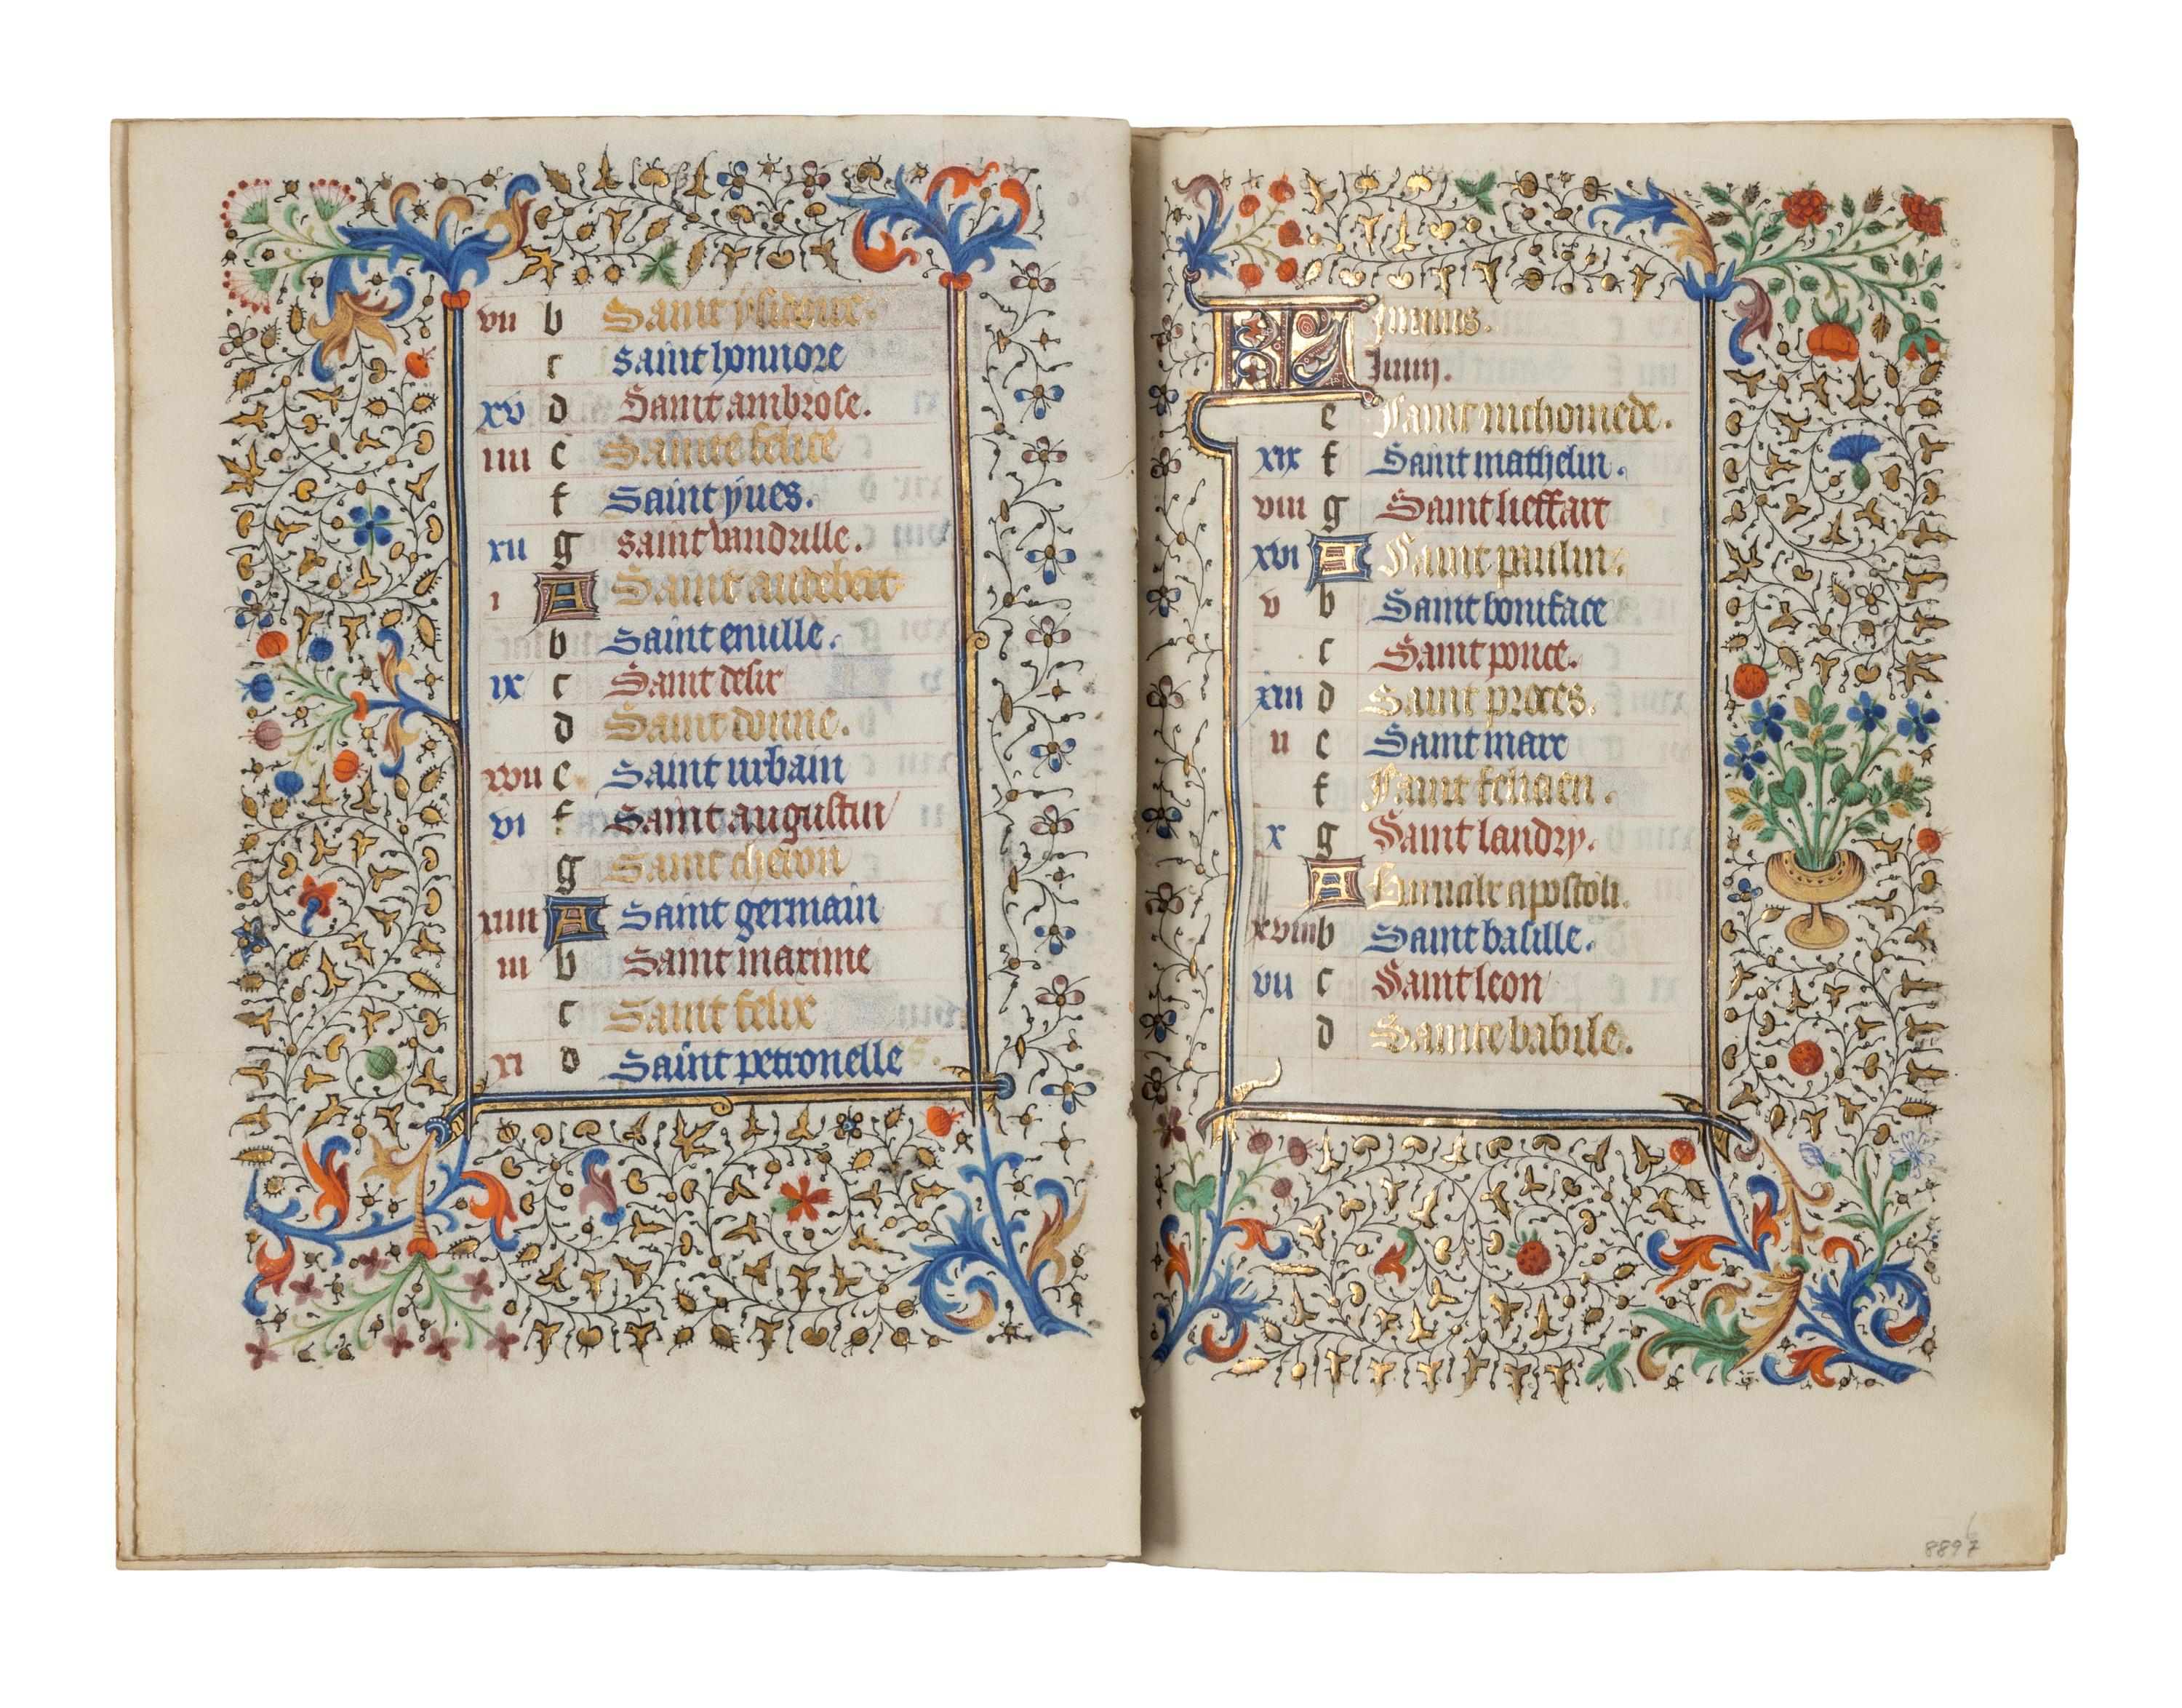 vii b Saint ysidoire.
c saint honnore
xv d Saint ambroise.
iiii e Sainte felice
f Saint yues.
xii g saint vandrille.
i A Saint audebert
b Saint emille.
ix c Saint desir
d Saint donne.
xvii e Saint urbain
vi f Saint augustin
g Saint cheron
xiiii A Saint germain
iii b Saint maxime
c Saint felix
xi d Saint petronelle
KL Junius.
Juing.
e Saint nichomede.
xix f Saint mathelin.
viii g Saint lieffart
xvi A Saint paulin.
v b Saint boniface
c Saint ponce.
xiii d Saint proces.
ii e Saint marc
f Saint felicien.
x g Saint landry.
A Barnabe apostoli.
xviii b Saint basille.
vii c Saint leon
d Sainte babile.
889